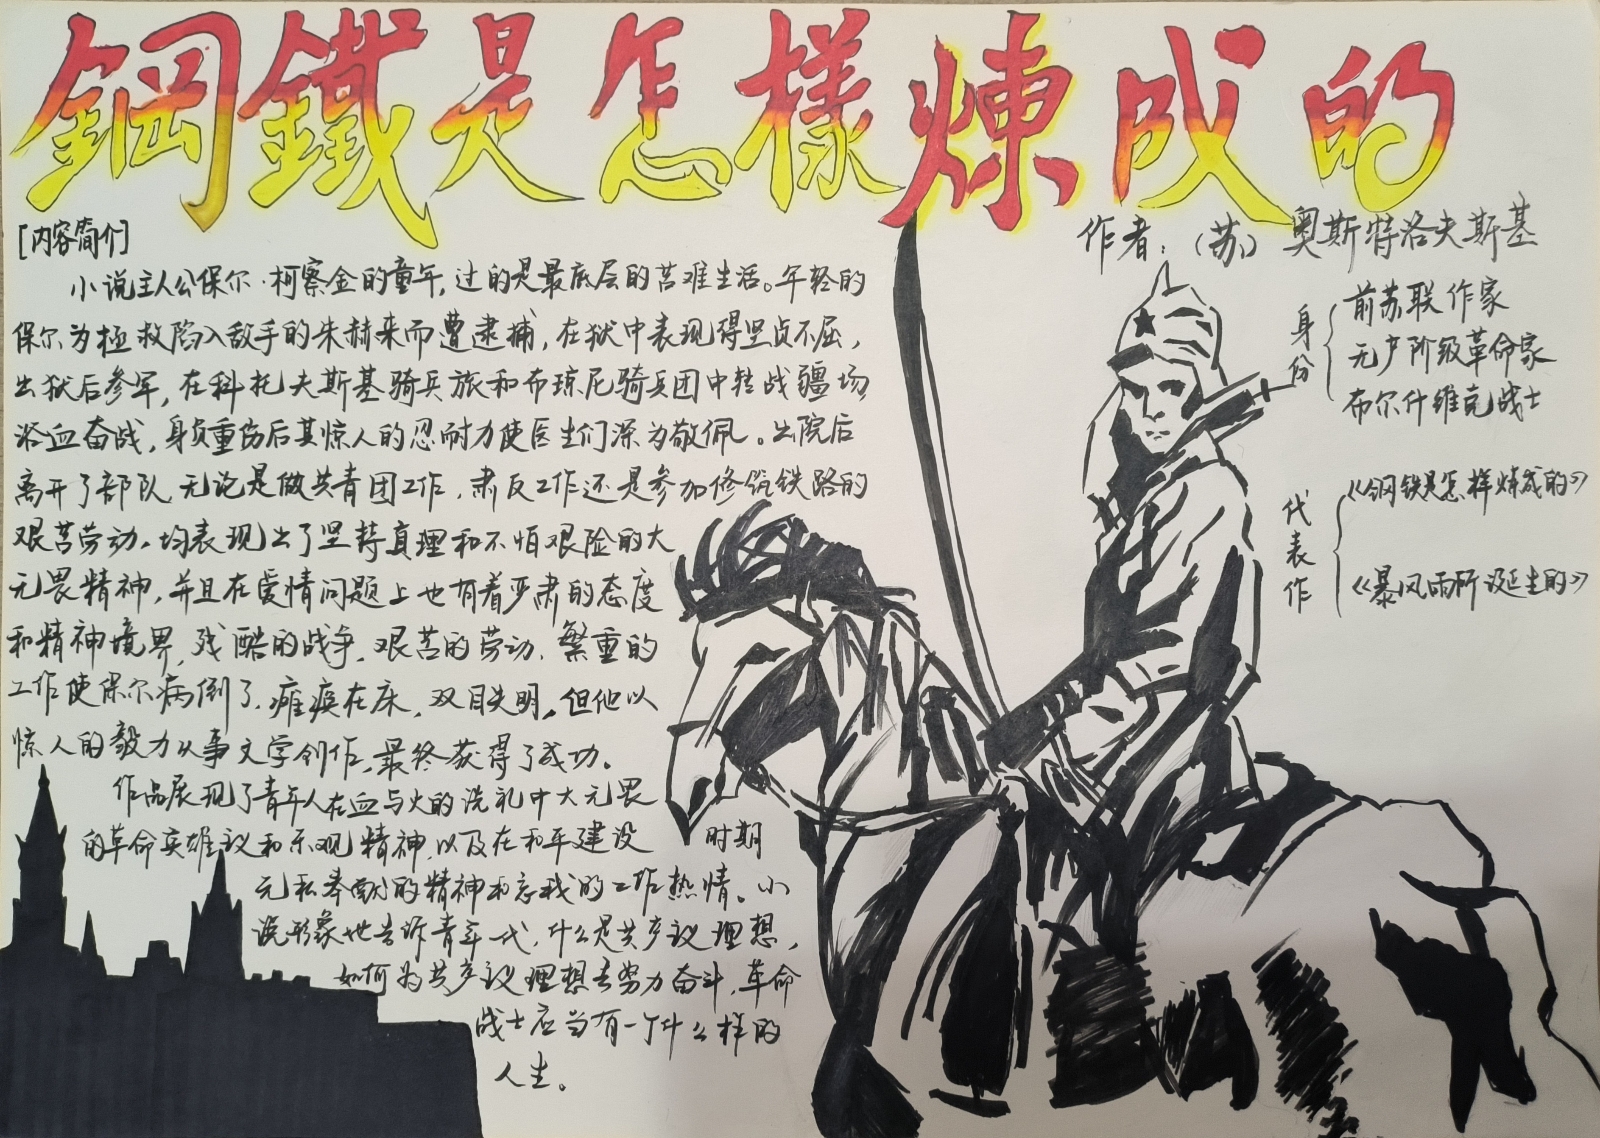 鋼鐵是怎樣煉成的
作者：（苏）奥斯特洛夫斯基
[内容简介]
小说主人公保尔·柯察金的童年，过的是最底层的苦难生活。年轻的
保尔为拯救陷入敌手的朱赫来而遭逮捕，在狱中表现得坚贞不屈，
出狱后参军，在科托夫斯基骑兵旅和布琼尼骑兵团中转战疆场
浴血奋战，身负重伤后其惊人的忍耐力使医生们深为敬佩。出院后
离开了部队，无论是做共青团工作，肃反工作还是参加修筑铁路的
艰苦劳动，均表现出了坚持真理和不怕艰险的大
无畏精神，并且在爱情问题上也有着严肃的态度
和精神境界，残酷的战争，艰苦的劳动，繁重的
工作使保尔病倒了，瘫痪在床，双目失明，但他以
惊人的毅力从事文学创作，最终获得了成功。
作品展现了青年人在血与火的洗礼中大无畏
的革命英雄议和乐观精神，以及在和平建设时期
无私奉献的精神和忘我的工作热情。小
说形象地告诉青年一代，什么是共产议理想，
如何为共产议理想去努力奋斗，革命
战士应当有一个什么样的
人生。
身份
前苏联作家
无产阶级革命家
布尔什维克战士
代表作
《钢铁是怎样炼成的》
《暴风雨所诞生的》